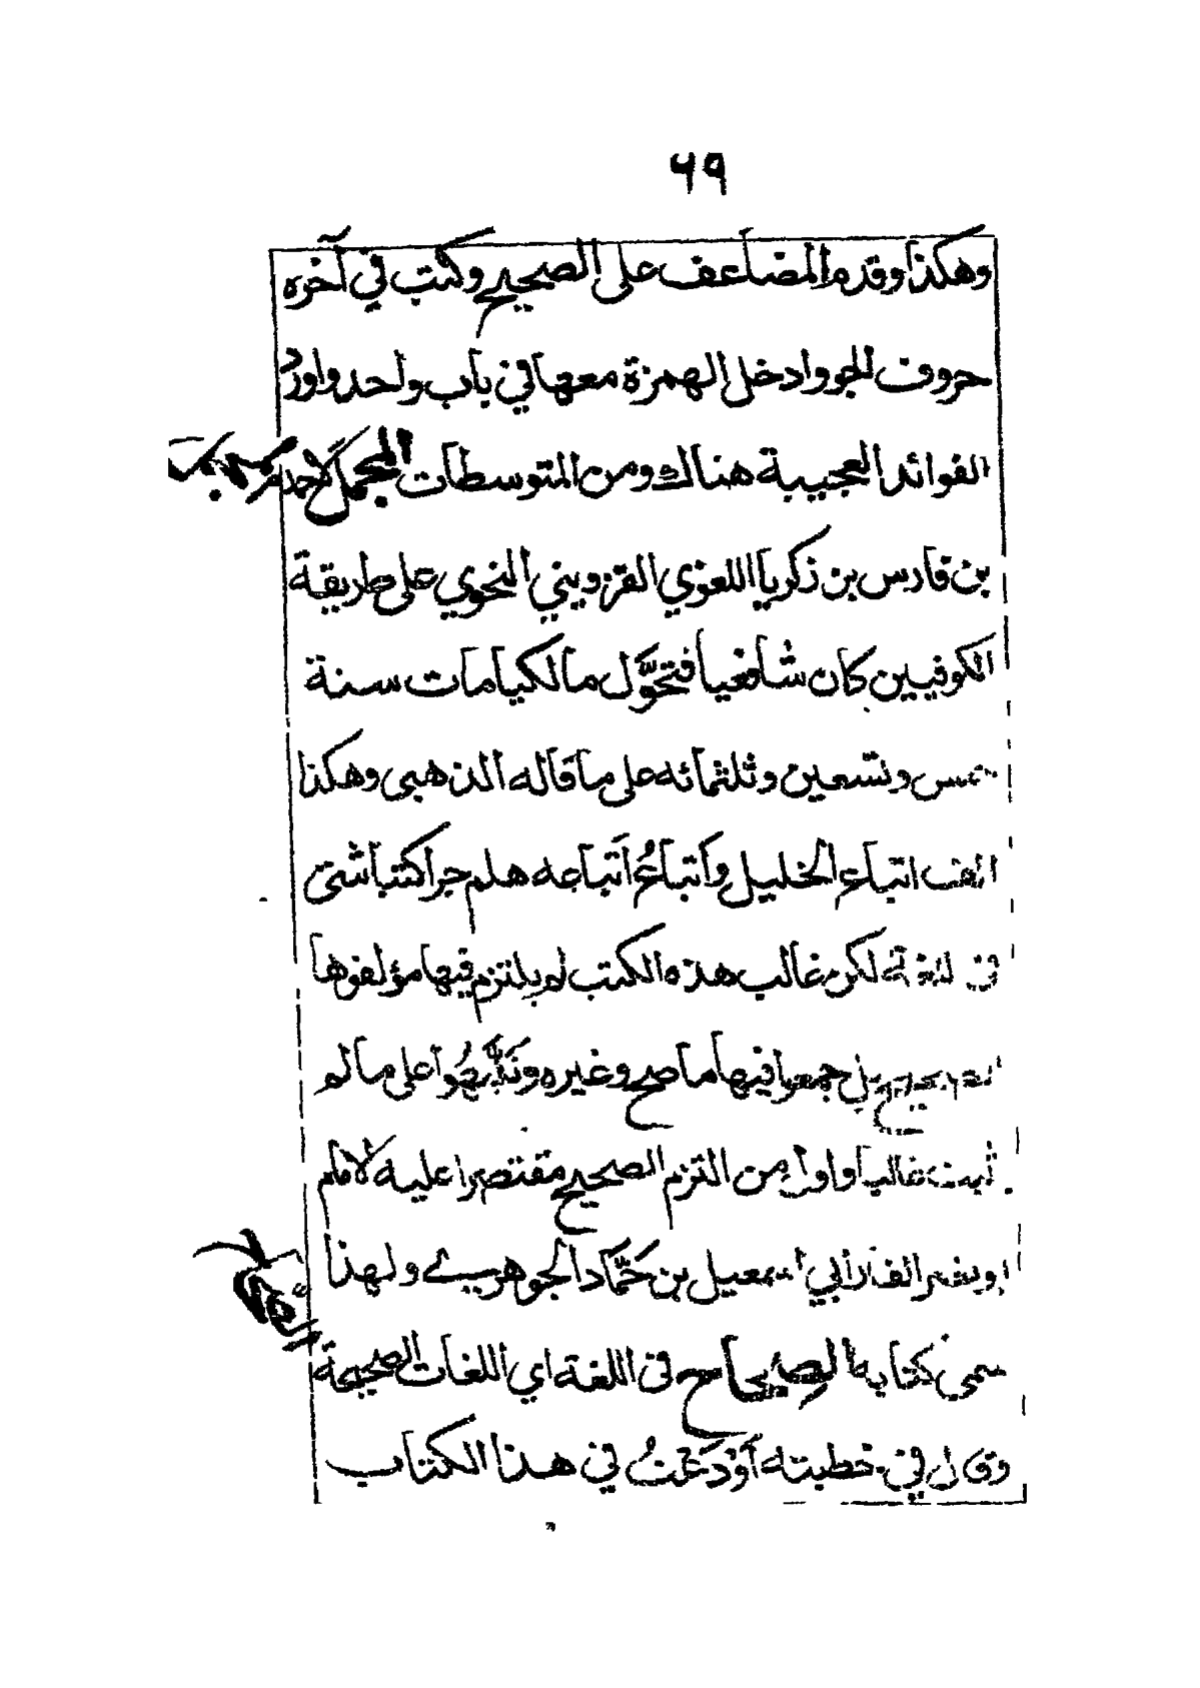 ٦٩
وهكذا وقدم المضاعف على الصحيح وكتب في آخره
حروف الجو وادخل الهمزة معها في باب واحد واورد
الفوائد العجيبة هناك ومن المتوسطات المجمل لاحمد
بن فارس بن زكريا اللغوي القزويني النحوي على طريقة
الكوفيين كان شافعيا فتحوَّل مالكيا مات سنة
خمس وتسعين وثلثمائه على ما قاله الذهبي وهكذا
الف اتباع الخليل وأتباعُ اتباعه هلم جرا كتبا شتى
في اللغة لكن غالب هذه الكتب لم يلتزم فيها مؤلفوها
الصحيح بل جمعوا فيها ما صح وغيره ونَبَّهُوا على ما لم
ثبت غالبا واول من التزم الصحيح مقتصرا عليه الامام
ابو نصر الفارابي اسمعيل بن حَمَّاد الجوهري ولهذا
سمى كتابه الصحاح في اللغة اي اللغات الصحيحة
وقال في خطبته أَوْدَعْتُ في هذا الكتاب